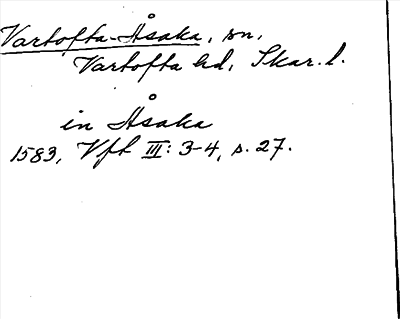 Vartofta-Åsaka, sn,
Vartofta hd, Skar. l.
in Åsaka
1583, Vft III: 3-4, s. 27.